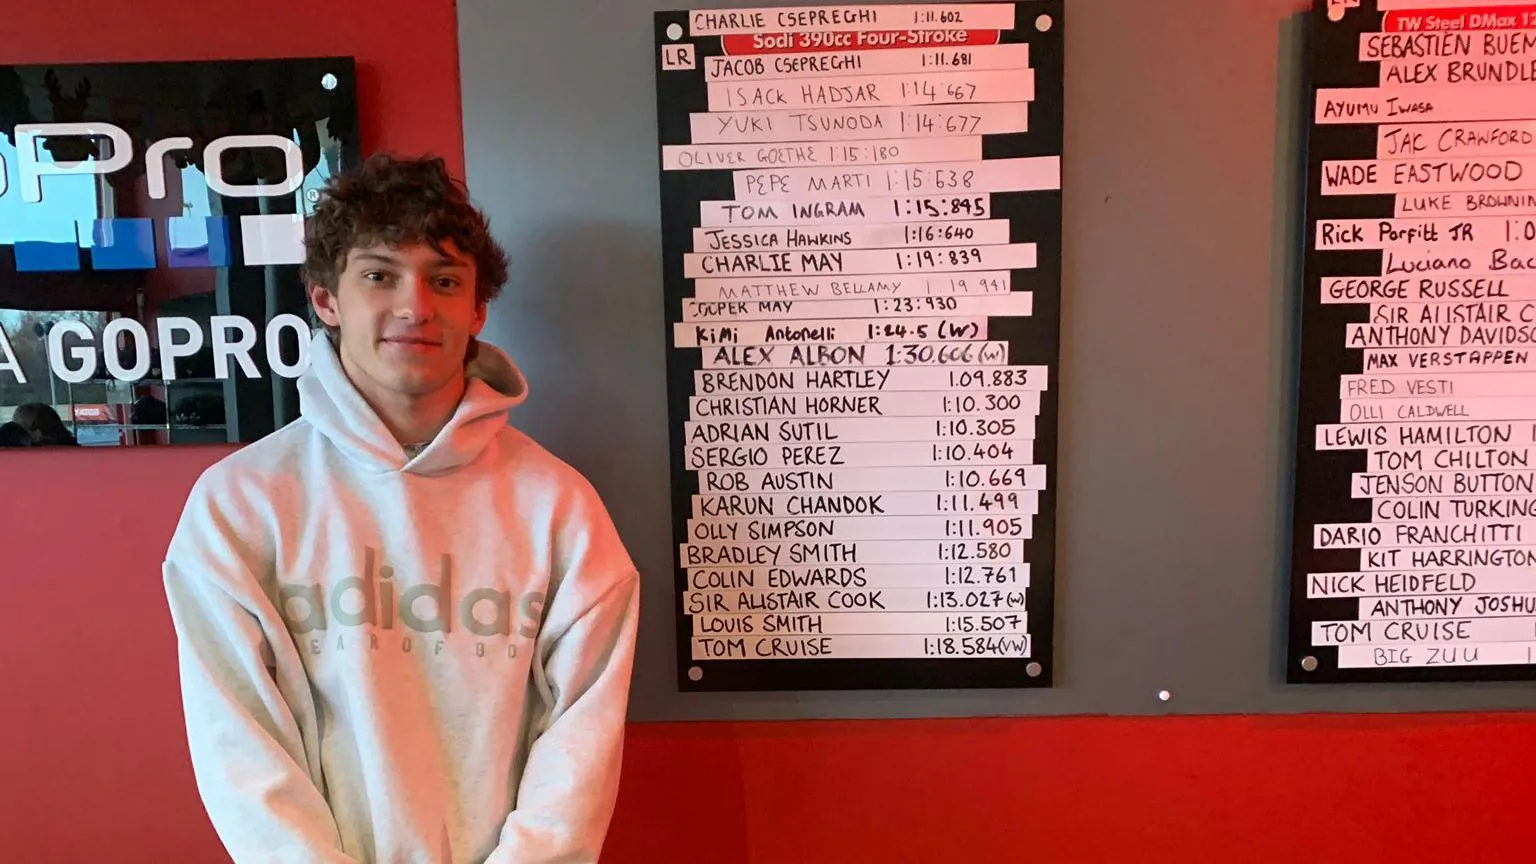 GoPro
A GOPRO
adidas
CHARLIE CSEPREGHI 1:11.602
Sodi 390cc Four-Stroke
LR
JACOB CSEPREGHI 1:11.681
ISACK HADJAR 1:14:667
YUKI TSUNODA 1:14:677
OLIVER GOETHE 1:15:180
PEPE MARTI 1:15:638
TOM INGRAM 1:15:895
JESSICA HAWKINS 1:16:640
CHARLIE MAY 1:19:839
MATTHEW BELLAMY 1:19 941
COOPER MAY 1:23:930
KiMi Antonelli 1:24.5 (W)
ALEX ALBON 1:30.606 (W)
BRENDON HARTLEY 1.09.883
CHRISTIAN HORNER 1:10.300
ADRIAN SUTIL 1:10.305
SERGIO PEREZ 1:10.404
ROB AUSTIN 1:10.669
KARUN CHANDOK 1:11.499
OLLY SIMPSON 1:11.905
BRADLEY SMITH 1:12.580
COLIN EDWARDS 1:12.761
SIR ALISTAIR COOK 1:13.027(W)
LOUIS SMITH 1:15.507
TOM CRUISE 1:18.584(VW)
TW Steel DMax
SEBASTIEN BUEM
ALEX BRUNDLE
AYUMU IWASA
JAK CRAWFORD
WADE EASTWOOD
LUKE BROWNIN
Rick Parfitt JR 1:0
Luciano Bac
GEORGE RUSSELL
SIR ALISTAIR C
ANTHONY DAVIDSO
MAX VERSTAPPEN
FRED VESTI
OLLI CALDWELL
LEWIS HAMILTON
TOM CHILTON
JENSON BUTTON
COLIN TURKING
DARIO FRANCHITTI
KIT HARRINGTON
NICK HEIDFELD
ANTHONY JOSHU
TOM CRUISE
BIG ZUU